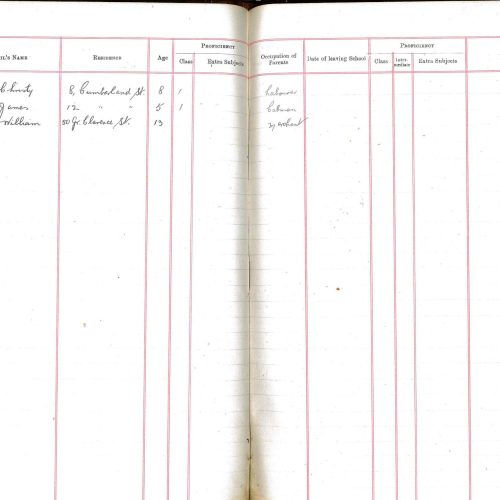 PROFICIENCY PROFICIENCY
IL'S NAME RESIDENCE Age Class Extra Subjects Occupation of Parents Date of leaving School Class Inter-mediate Extra Subjects
Christy 8, Cumberland St. 8 1 Labourer
James 12 " " 5 1 Cabman
William 50 Gt. Clarence St. 13